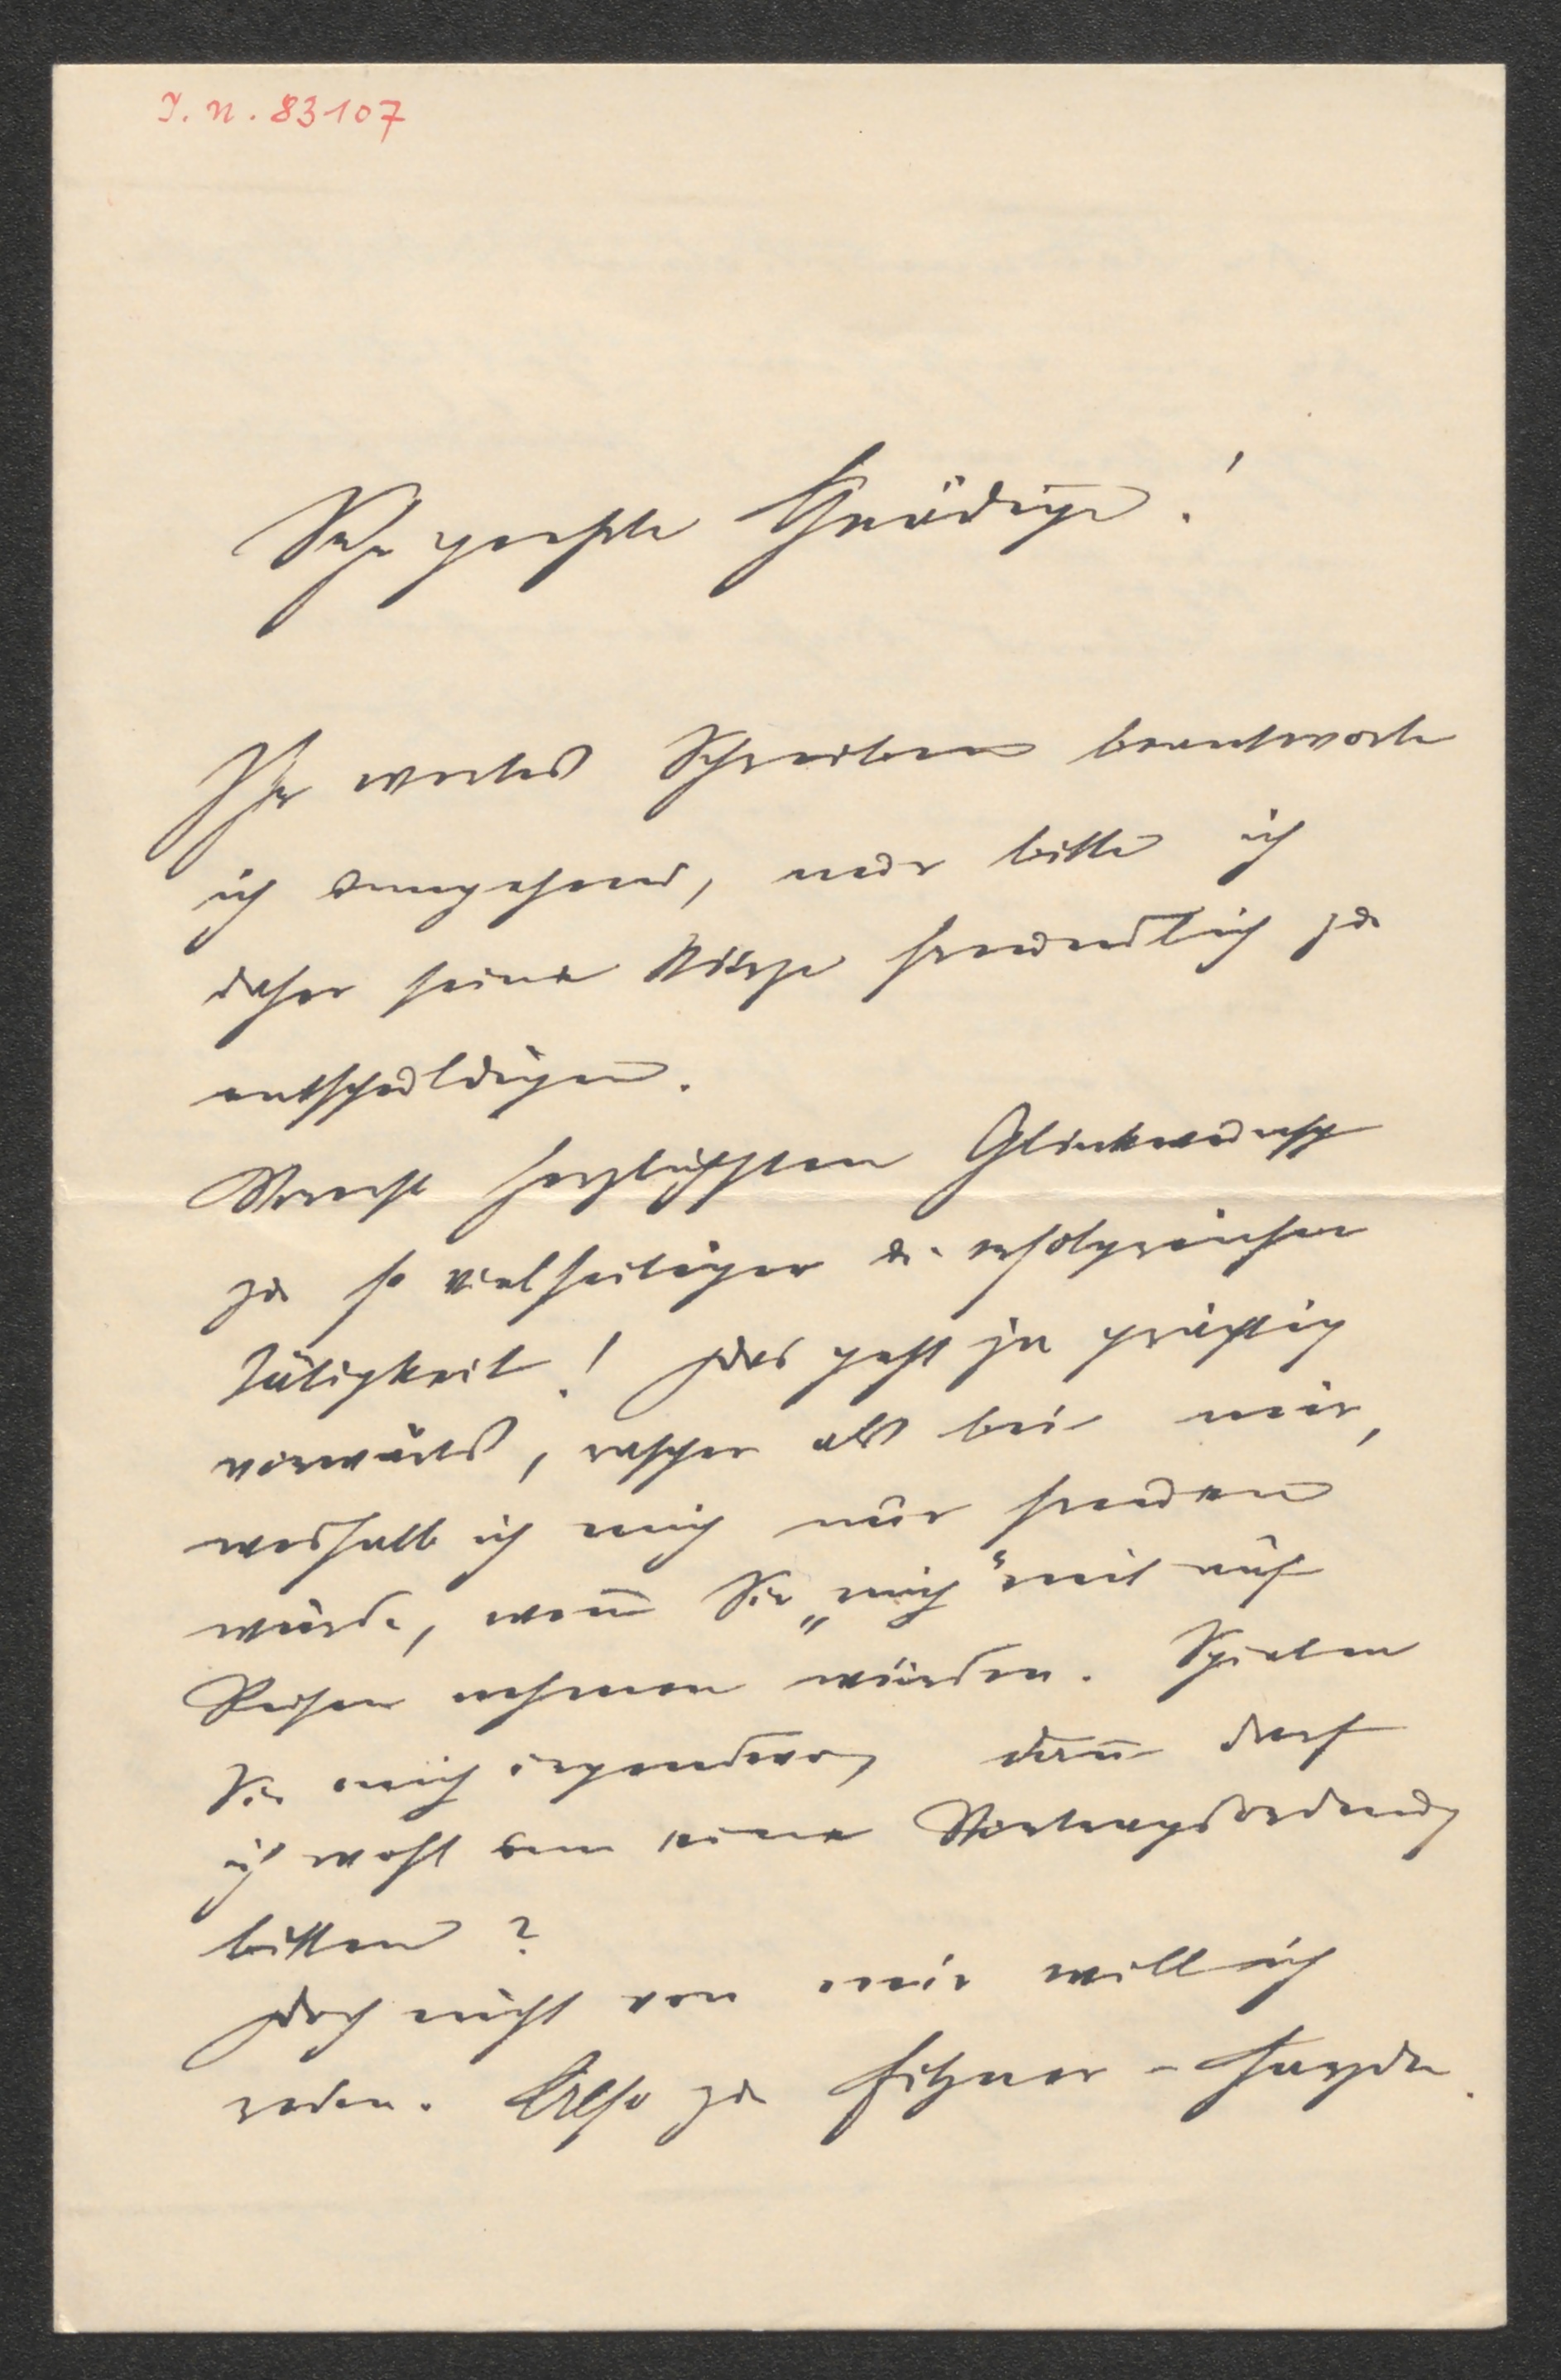 I. N. 83107
Sehr geehrte Gnädige!
Ihr wertes Schreiben beantworte
ich umgehend, nur bitte ich
daher seine Kürze freundlich zu
entschuldigen.
Vorerst herzlichsten Glückwunsch
zu so vielseitiger u. erfolgreicher
Tätigkeit! Das geht ja prächtig
vorwärts, rascher als bei mir,
weshalb ich mich nur freuen
würde, wenn Sie „mich“ mit auf
Reisen nehmen würden. Spielen
Sie mich irgendwo, dann darf
ich wohl um eine Vortragsordnung
bitten?
Doch nicht von mir will ich
reden. Also zu Fitzner-Haydn.